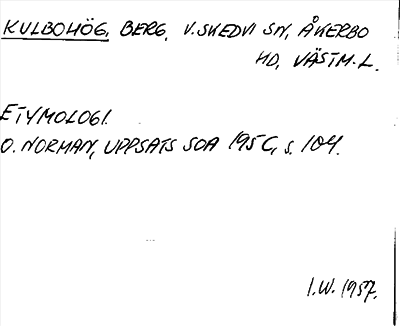 KULBOHÖG, BERG, V. SKEDVI SN, ÅKERBO
HD, VÄSTM. L.
ETYMOLOGI.
O. NORMAN, UPPSATS SOA 195C, s. 104.
I.W. 1957.